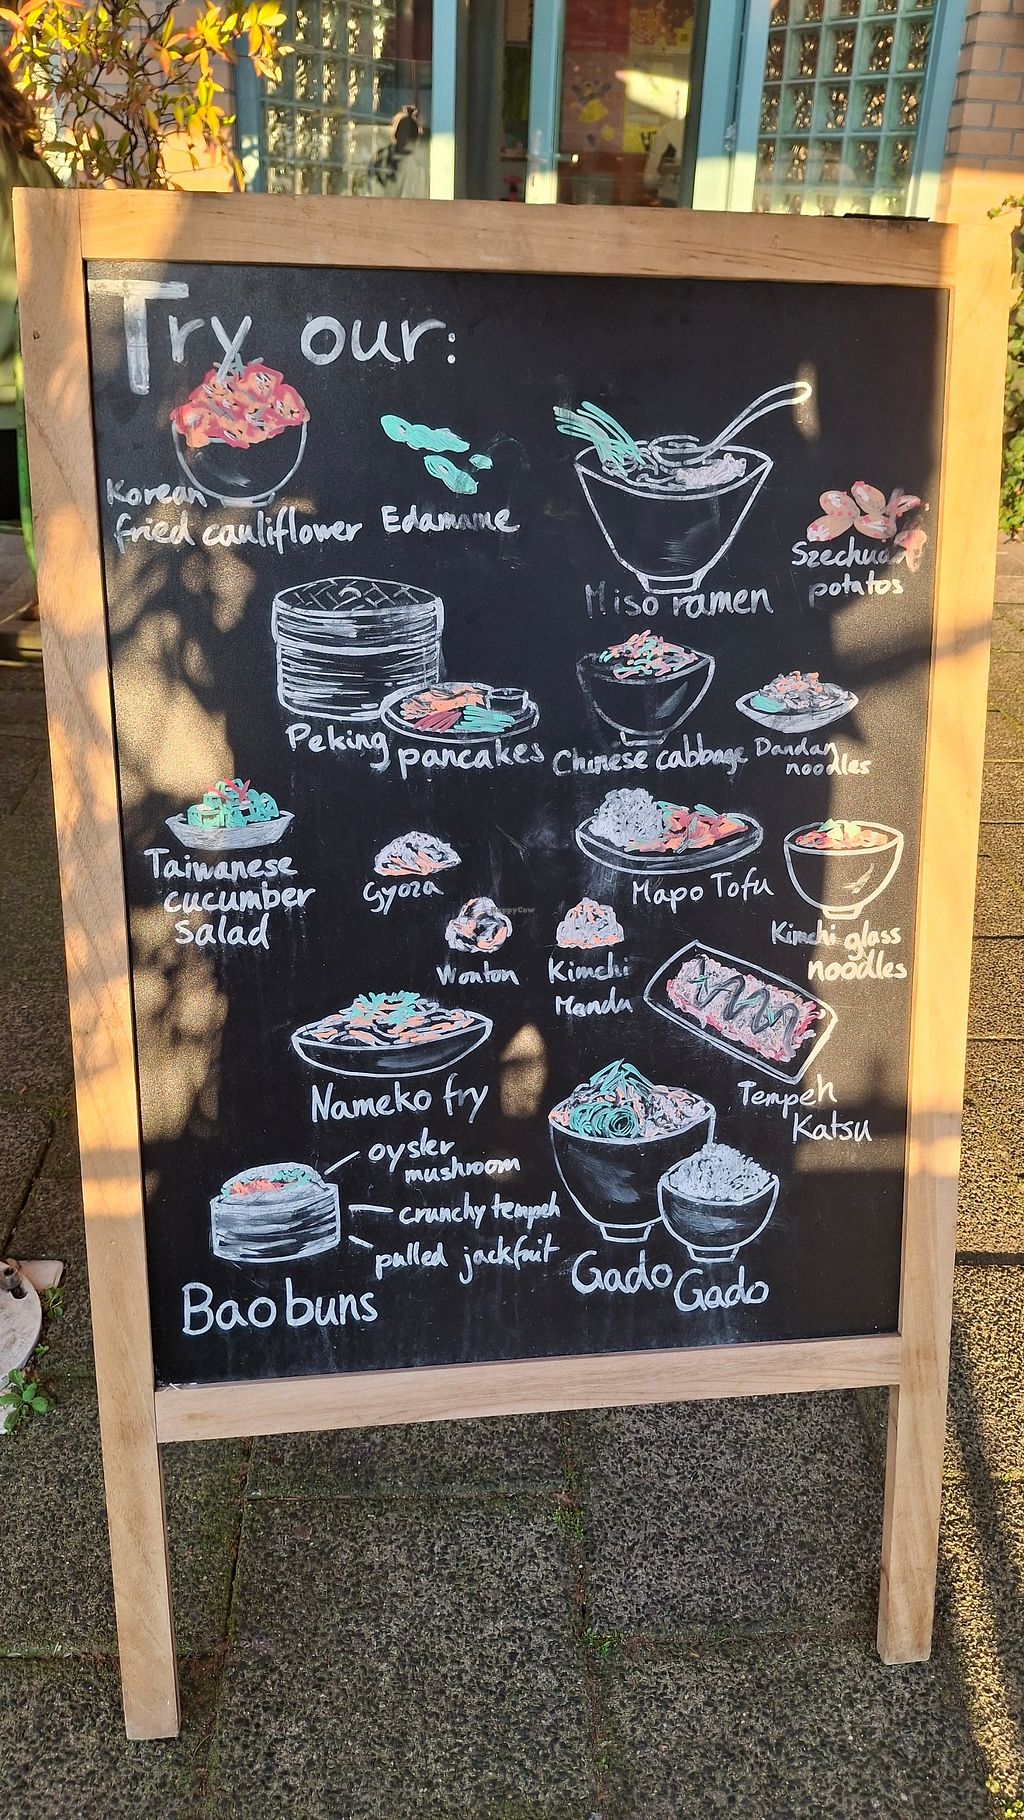 Try our:
Korean
fried cauliflower
Edamame
Miso ramen
Szechuan
potatos
Peking pancakes
Chinese cabbage
Dandan
noodles
Taiwanese
cucumber
salad
Gyoza
Mapo Tofu
Kimchi glass
noodles
Wonton
Kimchi
Mandu
HappyCow
Nameko fry
Tempeh
Katsu
oyster
mushroom
crunchy tempeh
pulled jackfruit
Bao buns
Gado Gado